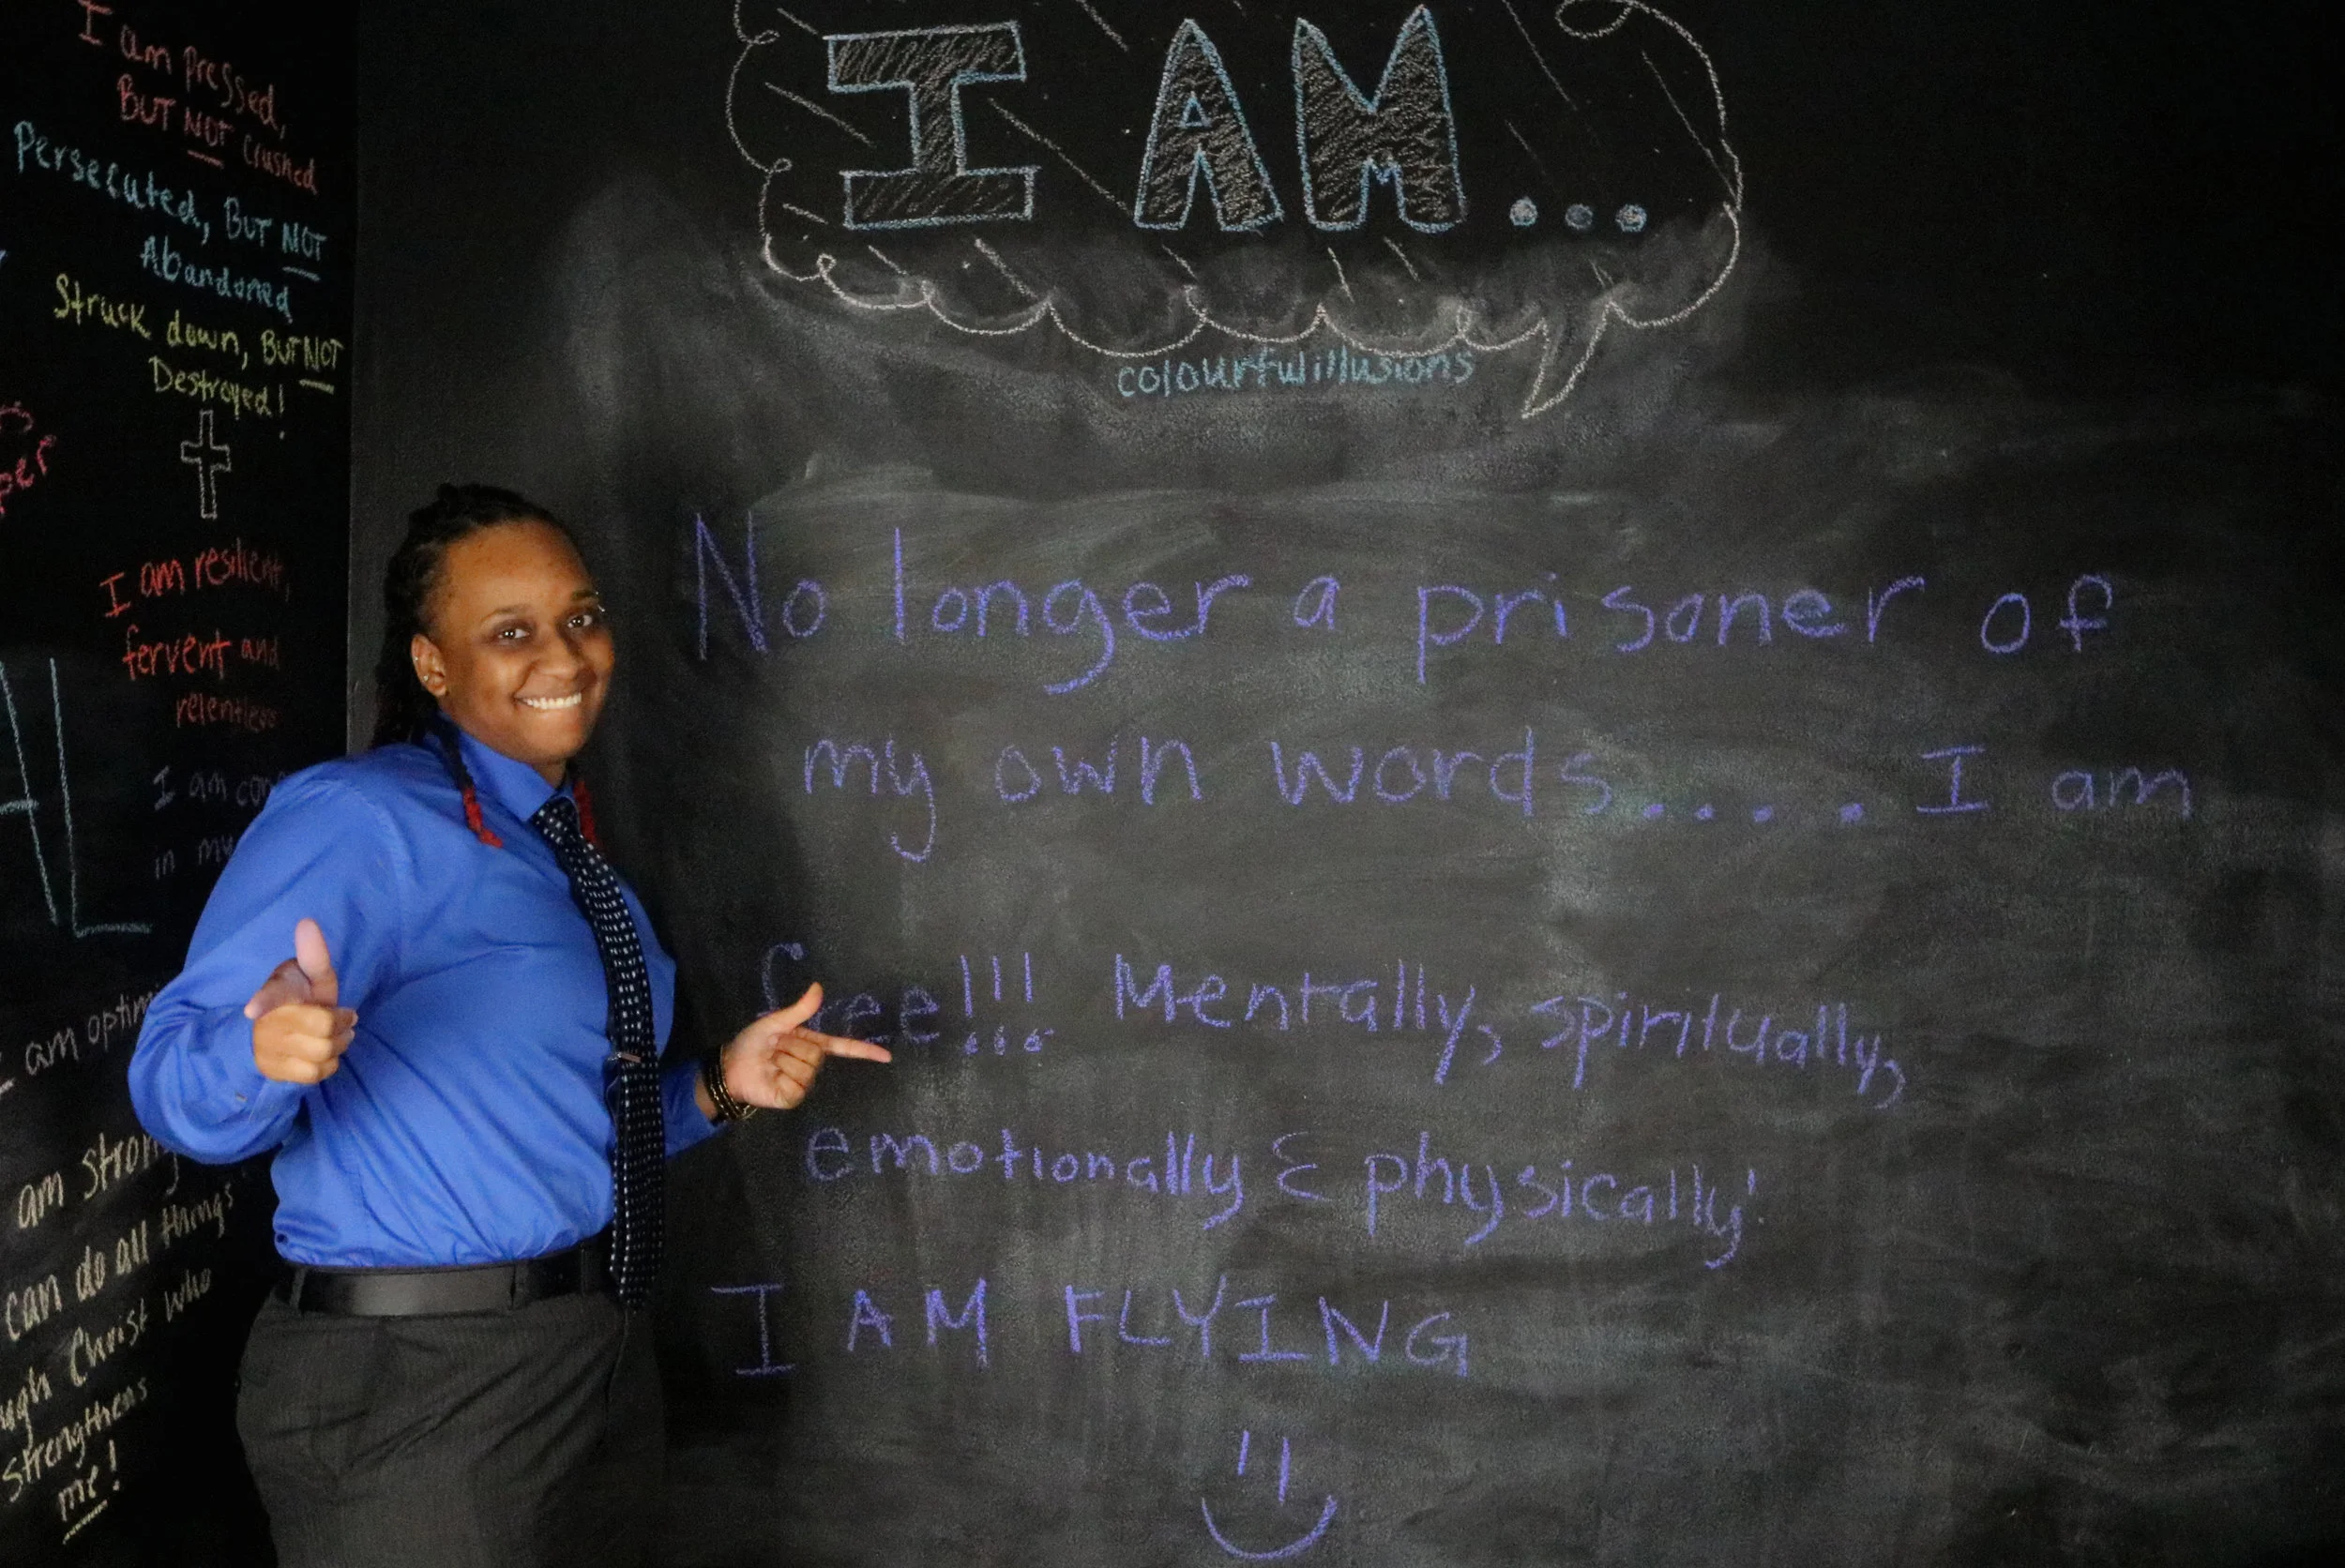 I am pressed,
BUT NOT crushed
Persecuted, BUT NOT
Abandoned
Struck down, BUT NOT
Destroyed!
I am resilient,
fervent and
relentless
I am
in my
I am
am strong
can do all things
Christ who
strengthens
me!
I AM...
colourfulillusions
No longer a prisoner of
my own words..... I am
free!!! Mentally, spiritually,
emotionally & physically!
I AM FLYING